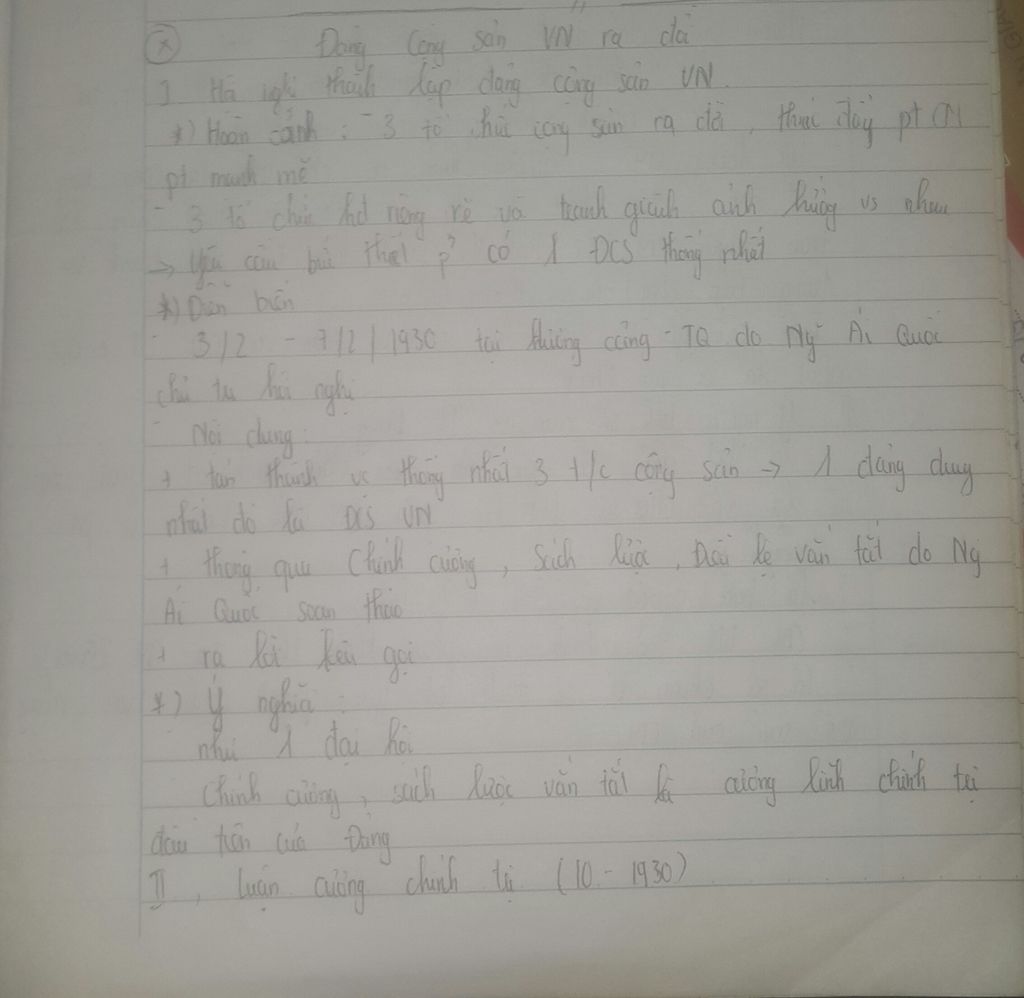 (*) Đảng Cộng sản VN ra đời
I Hội nghị thành lập đảng cộng sản VN.
*) Hoàn cảnh : - 3 tổ chức cộng sản ra đời, thúc đẩy pt CM
pt mạnh mẽ
- 3 tổ chức hđ riêng rẽ và tranh giành ảnh hưởng vs nhau
→ Yêu cầu bức thiết p? có 1 ĐCS thống nhất
*) Diễn biến
- 3/2 - 7/2/1930 tại Hương cảng - TQ do Ng~ Ái Quốc
chủ trì hội nghị
- Nội dung:
+ tán thành vc thống nhất 3 t/c cộng sản → 1 đảng duy
nhất đó là ĐCS VN
+ thông qua Chính cương, Sách lược, Điều lệ vắn tắt do Ng~
Ái Quốc soạn thảo
+ ra lời kêu gọi
*) Ý nghĩa :
như 1 đại hội
Chính cương, sách lược vắn tắt là cương lĩnh chính trị
đầu tiên của Đảng
II, Luận cương chính trị (10 - 1930)